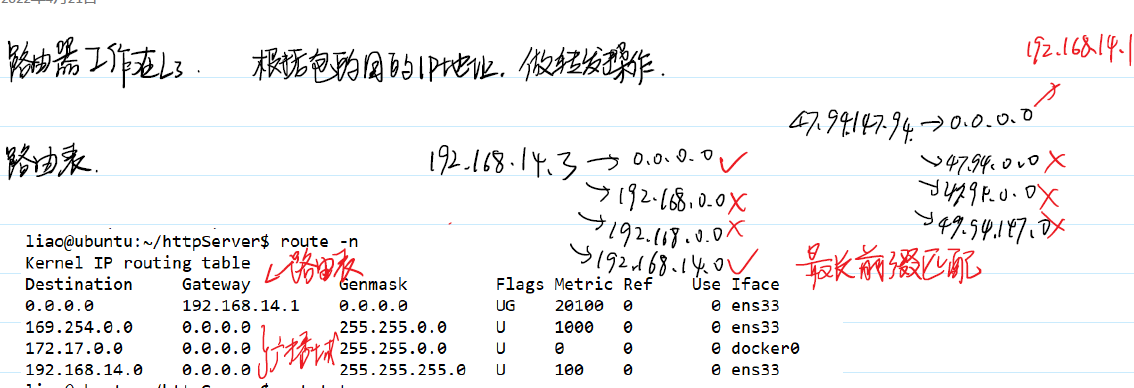 2022年4月21日
路由器工作在L3. 根据包的目的IP地址. 做转发操作.
192.168.14.1
47.94.147.94. → 0.0.0.0
路由表.
192.168.14.3 → 0.0.0.0 ✓
→ 47.94.0.0 ×
→ 192.168.0.0 ×
→ 47.94.0.0 ×
→ 192.168.0.0 ×
→ 49.94.147.0 ×
→ 192.168.14.0 ✓
最长前缀匹配
liao@ubuntu:~/httpServer$ route -n
Kernel IP routing table
路由表
Destination Gateway Genmask Flags Metric Ref Use Iface
0.0.0.0 192.168.14.1 0.0.0.0 UG 20100 0 0 ens33
169.254.0.0 0.0.0.0 255.255.0.0 U 1000 0 0 ens33
广播域
172.17.0.0 0.0.0.0 255.255.0.0 U 0 0 0 docker0
192.168.14.0 0.0.0.0 255.255.255.0 U 100 0 0 ens33